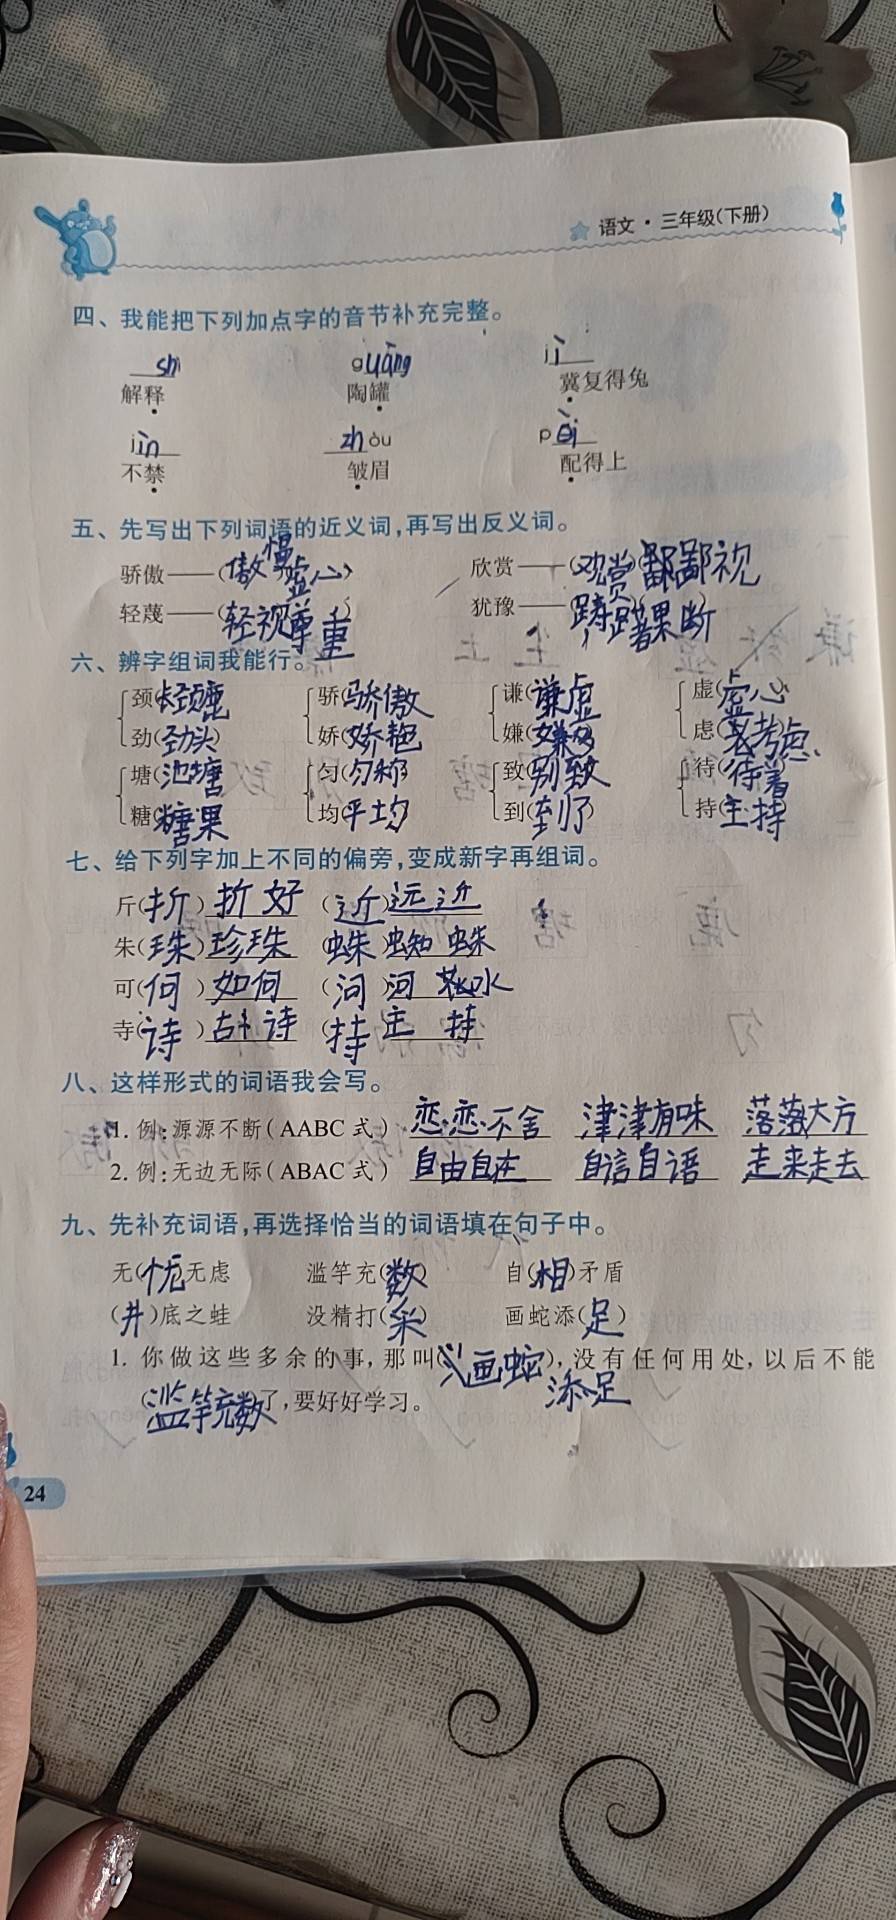 语文·三年级(下册)
四、我能把下列加点字的音节补充完整。
shì guàng jì
解释 陶罐 冀复得兔
jìn zhòu pèi
不禁 皱眉 配得上
五、先写出下列词语的近义词,再写出反义词。
骄傲——(傲慢 虚心) 欣赏——(观赏)(鄙视
轻蔑——(轻视尊重) 犹豫——(踌躇果断
六、辨字组词我能行。
颈(长颈鹿 骄(骄傲 谦(谦虚 虚(虚心
劲(劲头) 娇(娇艳 嫌( 虑(考虑
塘(池塘 匀(匀称 致(别致 待(待着
糖(糖果 均(平均 到(到了) 持(主持
七、给下列字加上不同的偏旁,变成新字再组词。
斤(折)折好 (近)远近
朱(珠)珍珠 (蛛)蜘蛛
可(何)如何 (河)河水
寺(诗)古诗 (持 主持
八、这样形式的词语我会写。
1. 例:源源不断(AABC 式) 恋恋不舍 津津有味 落落大方
2. 例:无边无际(ABAC 式) 自由自在 自言自语 走来走去
九、先补充词语,再选择恰当的词语填在句子中。
无(忧)无虑 滥竽充(数) 自(相)矛盾
(井)底之蛙 没精打(采) 画蛇添(足)
1. 你做这些多余的事,那叫(画蛇添足),没有任何用处,以后不能
(滥竽充数)了,要好好学习。
24